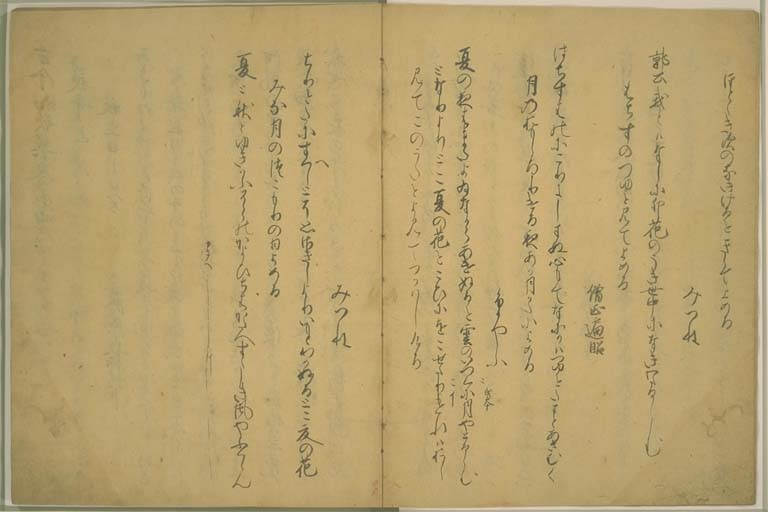 ほとゝきすのなきけるをきゝてよめる
みつね
郭公我とはなしに卯花のうき世中になきわたるらむ
はちすのつゆを見てよめる
僧正遍昭
はちすはのにこりにしまぬ心もてなにかはつゆをたまとあさむく
月のおもしろかりける夜あか月かたによめる
ふかやふ
夏の夜はまたよゐなからあけぬるを雲のいつこに月やとるらむ
となりよりとこ夏の花をこひにをこせたりけれはおし
みてこのうたをよみてつかはしける
みつね
ちりをたにすへしとそ思さきしよりいもとわかぬるとこ夏の花
みな月のつこもりの日よめる
夏と秋とゆきかふそらのかよひちはかたへすゝしき風やふくらん